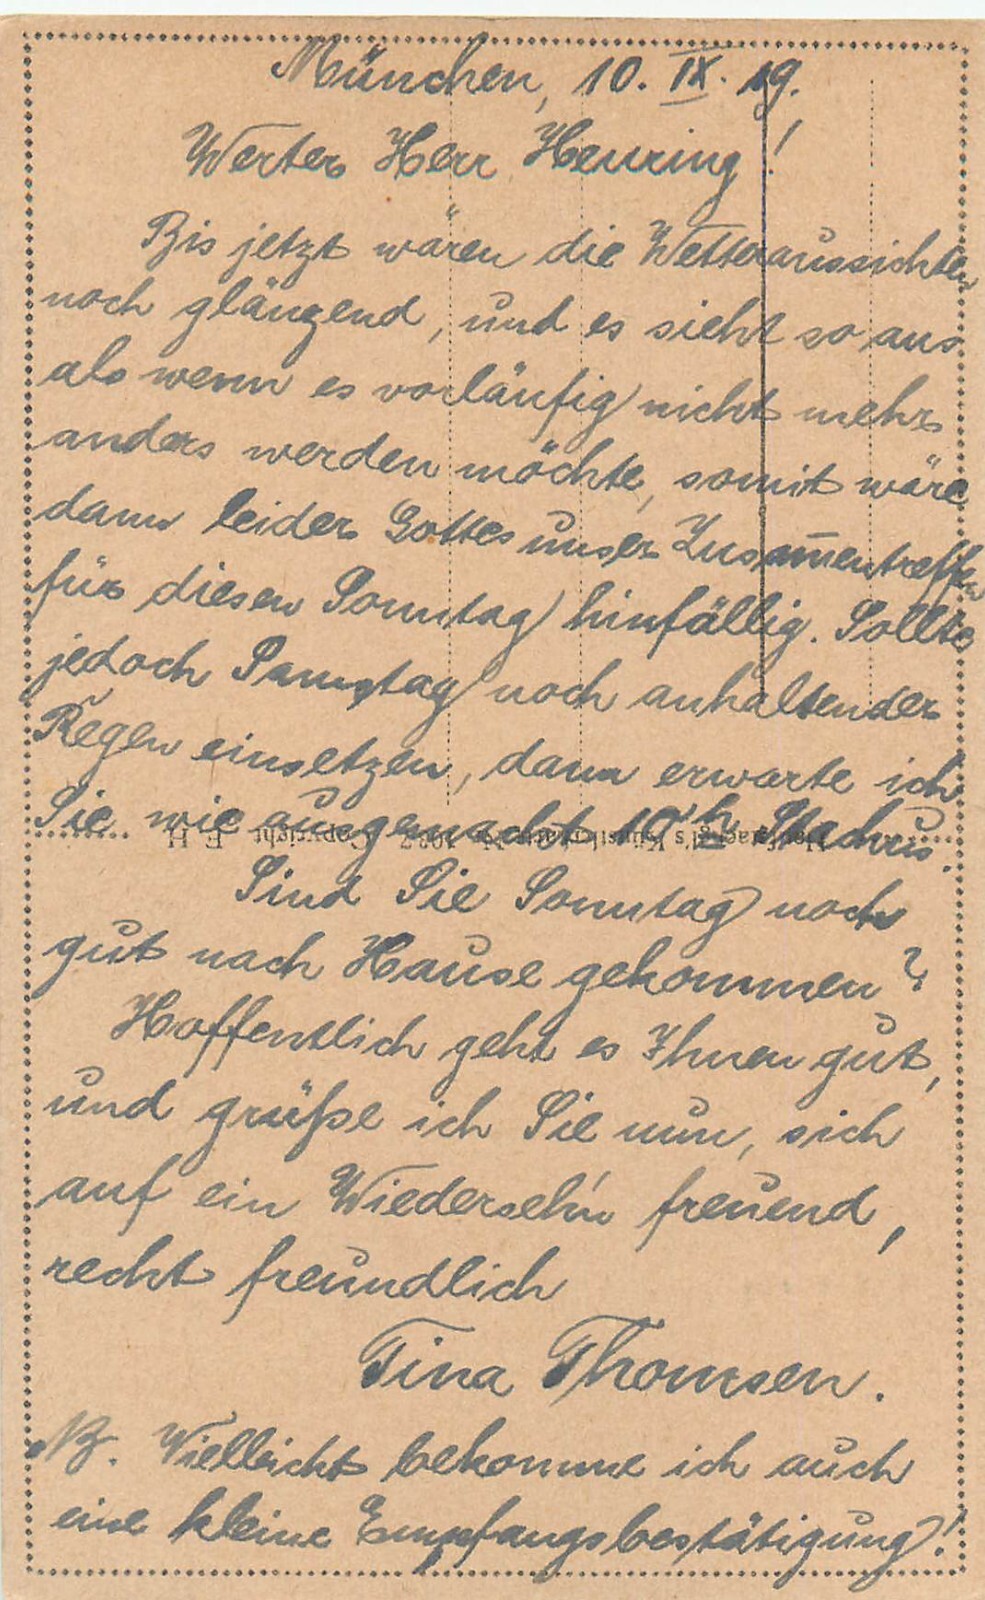 München, 10. IX. 19.
Werter Herr Heuring!
Bis jetzt wären die Wetteraussichten
noch glänzend, und es sieht so aus
als wenn es vorläufig nicht mehr
anders werden möchte, somit wäre
dann leider Gottes unser Zusam̅entreffen
für diesen Sonntag hinfällig. Sollte
jedoch Samstag noch anhaltender
Regen einsetzen, dann erwarte ich
Sie wie ausgemacht 10h Stachus.
Sind Sie Sonntag noch
gut nach Hause gekommen?
Hoffentlich geht es Ihnen gut,
und grüße ich Sie nun, sich
auf ein Wiederseh'n freuend,
recht freundlich
Tina Thomsen.
NB. Vielleicht bekomme ich auch
eine kleine Empfangsbestätigung!